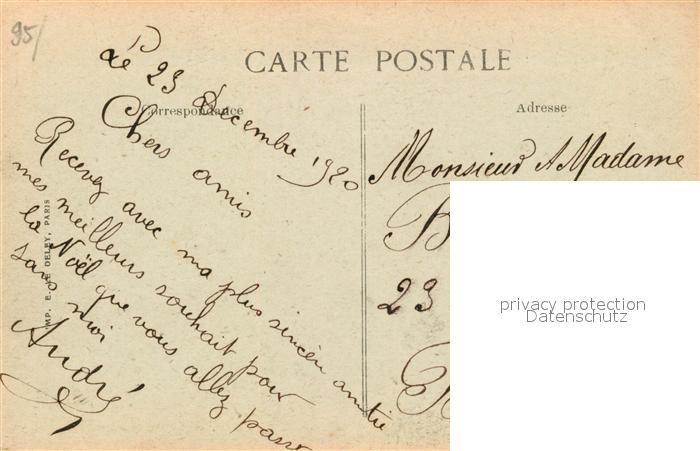 95/
CARTE POSTALE
Correspondance
Adresse
Le 23 Décembre 1920
Chers amis
Recevez avec ma plus sincèr amitié
mes meilleurs souhait pour
la Noël que vous allez passer
sans moi
André
Monsieur & Madame
B
23
R
IMP. E. LE DELEY, PARIS
privacy protection
Datenschutz